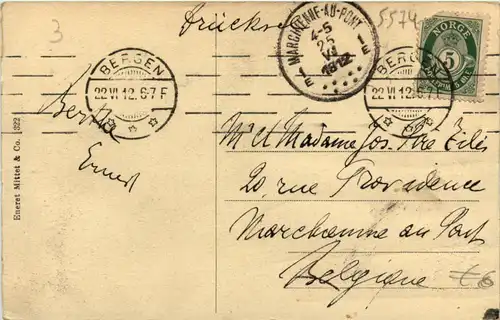 3
Drucksa
5574
MARCHIENNE-AU-PONT
4-5
25
VI
1912
E 1
1 E
NORGE
5
BERGEN
22 VI 12. 6-7 F
BERGEN
22 VI 12. 6-7 F
Ernst
Eneret Mittet & Co. 322
Mr et Madame Jos.
20, rue Providence
Marchienne au Pont
Belgique